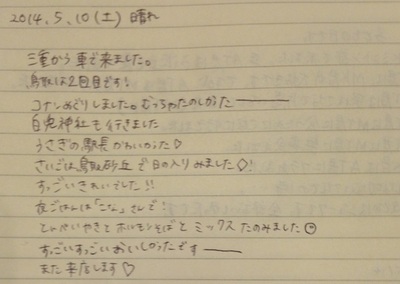 2014.5.10(土) 晴れ
三重から車で来ました。
鳥取は2回目です!
コナンめぐりしました。むっちゃたのしかった————
白兎神社も行きました
うさぎの駅長かわいかった♡
さいごは鳥取砂丘で日の入りみました◇!
すっごいきれいでした!!
夜ごはんは「こな」さんで!
とんぺいやきとホルモンそばとミックスたのみました☺
すっごいすっごいおいしかったです——
また来店します♡